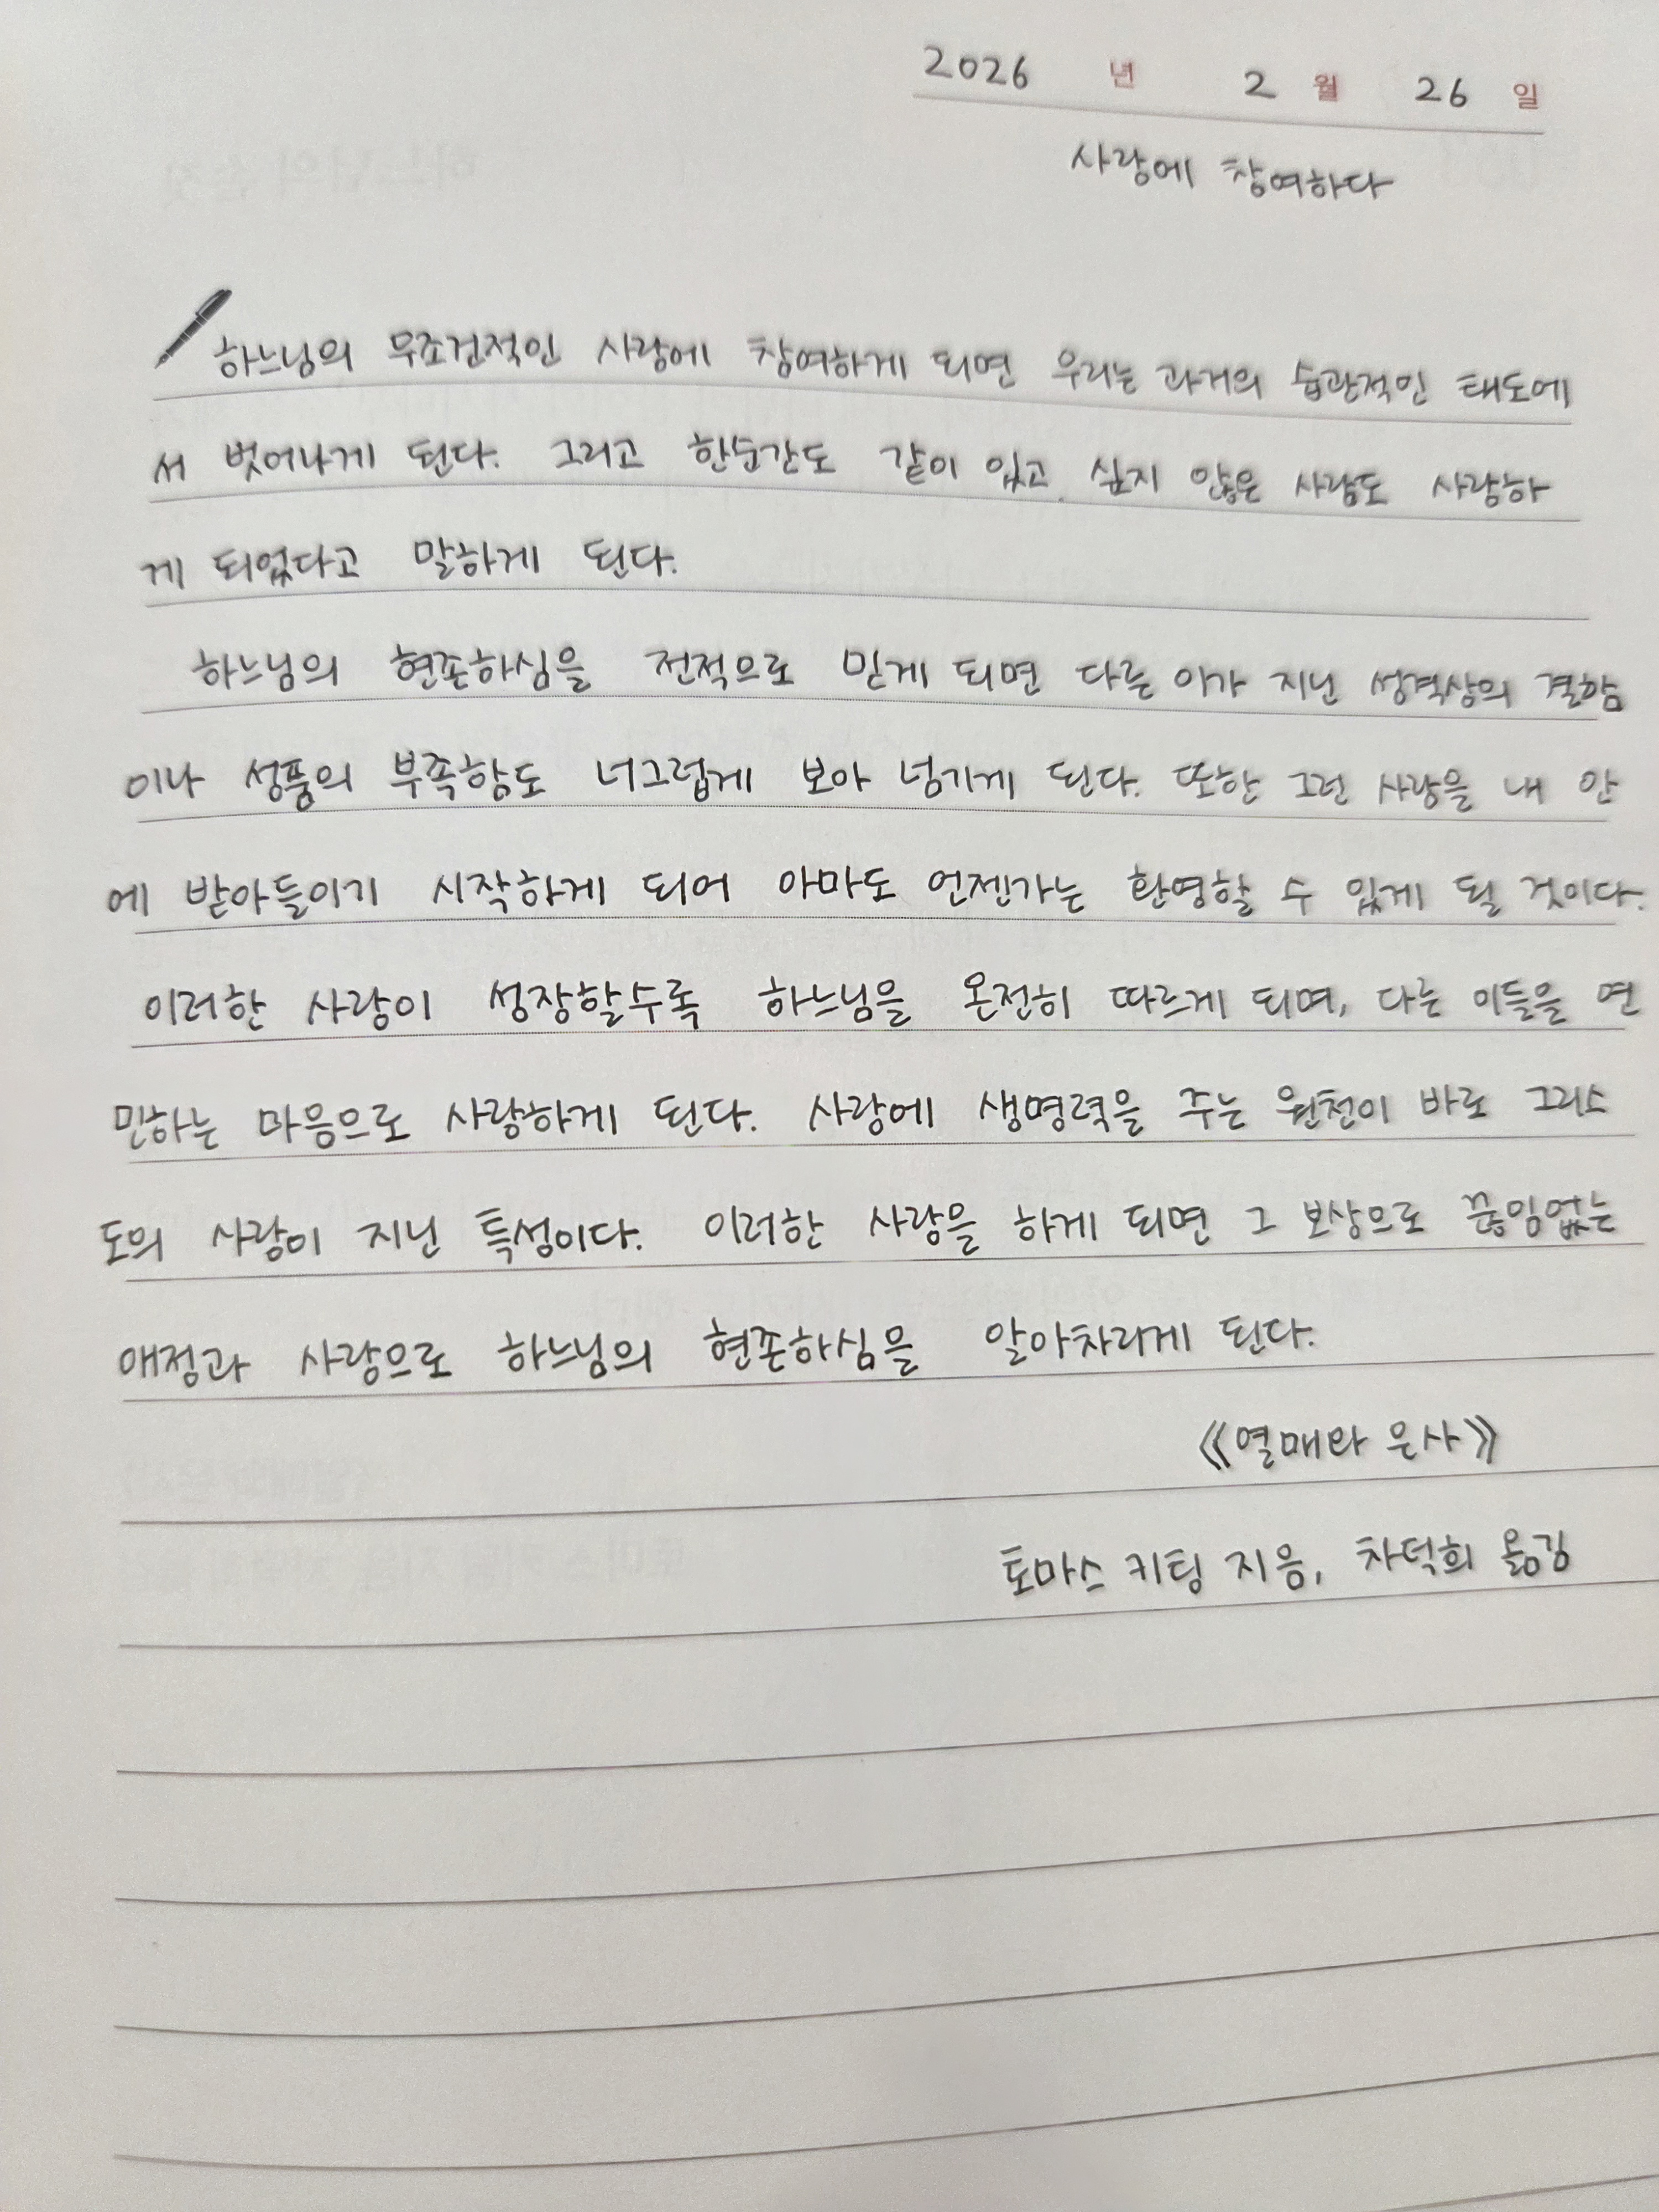 2026 년 2 월 26 일
사랑에 참여하다
하느님의 무조건적인 사랑에 참여하게 되면 우리는 과거의 습관적인 태도에
서 벗어나게 된다. 그리고 한순간도 같이 있고 싶지 않은 사람도 사랑하
게 되었다고 말하게 된다.
하느님의 현존하심을 전적으로 믿게 되면 다른 이가 지닌 성격상의 결함
이나 성품의 부족함도 너그럽게 보아 넘기게 된다. 또한 그런 사랑을 내 안
에 받아들이기 시작하게 되어 아마도 언젠가는 환영할 수 있게 될 것이다.
이러한 사랑이 성장할수록 하느님을 온전히 따르게 되며, 다른 이들을 연
민하는 마음으로 사랑하게 된다. 사랑에 생명력을 주는 원천이 바로 그리스
도의 사랑이 지닌 특성이다. 이러한 사랑을 하게 되면 그 보상으로 끊임없는
애정과 사랑으로 하느님의 현존하심을 알아차리게 된다.
《열매와 은사》
토마스 키팅 지음, 차덕희 옮김